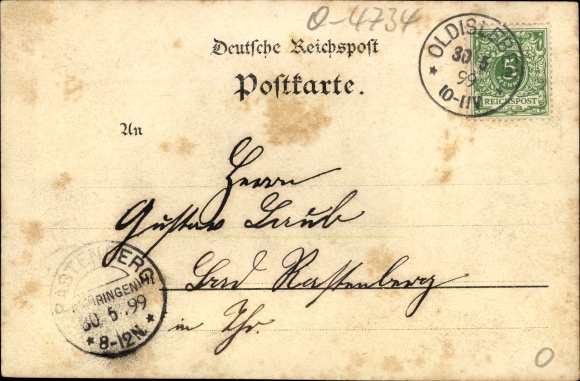 O-4734
Deutsche Reichspost
Postkarte.
OLDISLEBEN
30 5
99
10-11V
5
REICHSPOST
An
Herrn
Gustav Laub
Bad Rastenberg
in Thr.
RASTENBERG
(THÜRINGEN)
30 5 99
* 8-12N. *
O